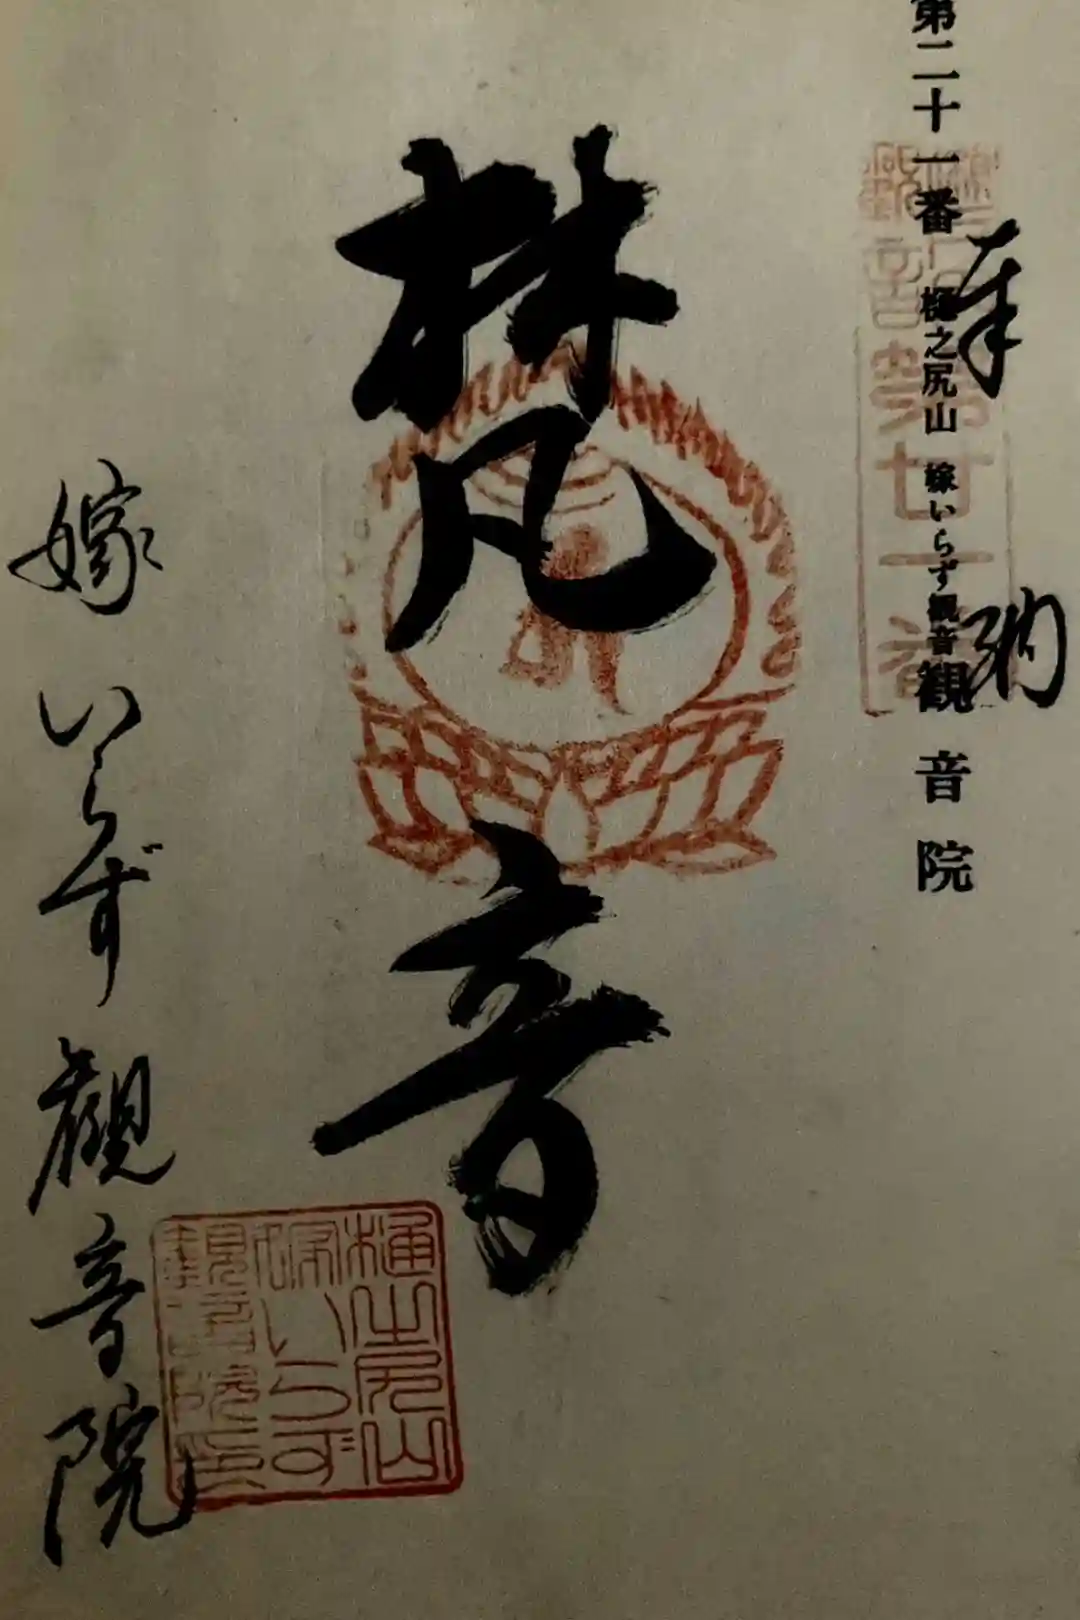 奉納
第二十一番 樋之尻山 嫁いらず観音 観音院
第廿一番
梵音
嫁いらず觀音院
樋之尻山
嫁いらず
観音院印